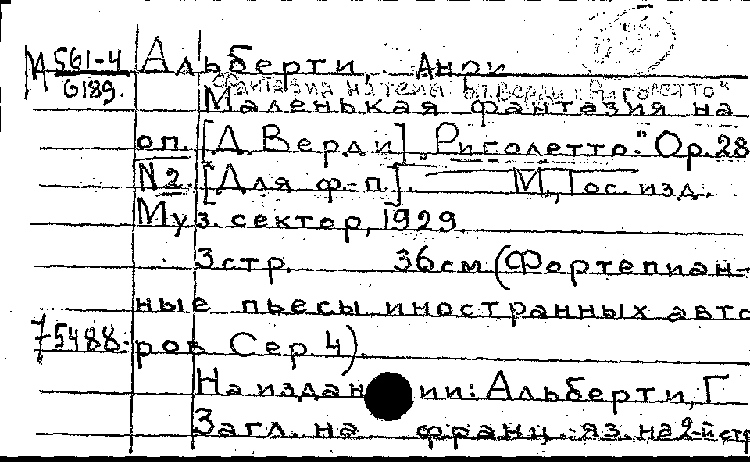 М 561-4 Альберти, Анри
6189. Фантазия на темы оп. Верди "Риголетто"
Маленькая фантазия на
оп. [Д. Верди] "Риголетто." Op. 28
N2. [Для ф-п]. М., Гос. изд.
Муз. сектор, 1929.
3 стр. 36 см. (Фортепиан-
ные пьесы иностранных авто
75488. ров Сер 4).
На издании: Альберти, Г
Загл. на франц. яз. на 2-й стр